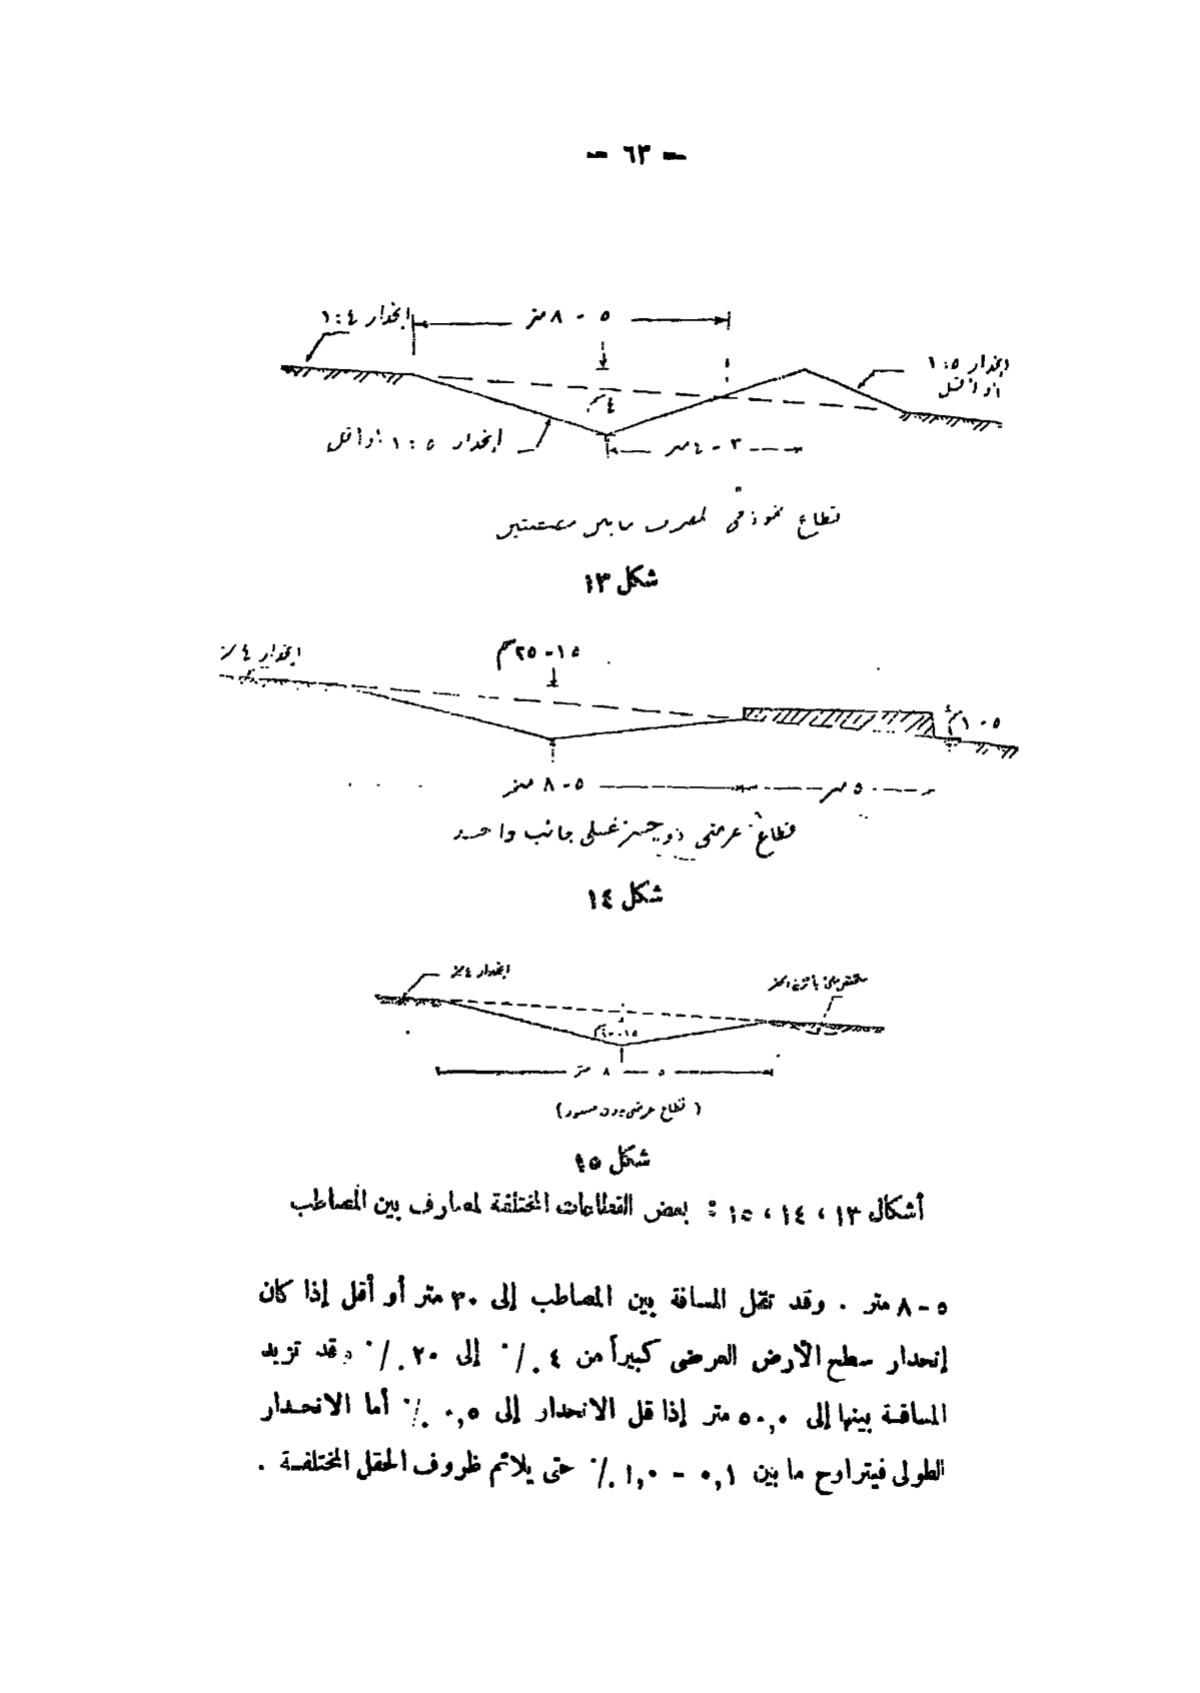 — ٦٣ —
انحدار ٤ : ١
٥ - ٨ متر
انحدار ٥ : ١
أو أقل
انحدار ٥ : ١ أو أقل
٣ - ٤ متر
قطاع نموذجى لمصرف ما بين
شكل ١٣
انحدار ٤٪
١٥ - ٢٥ سم
٥ - ١٠ سم
٥ - ٨ متر
٥ متر
قطاع عرضى ذو جسر على جانب واحد
شكل ١٤
انحدار ٤٪
٥ — ٨ متر
( قطاع عرضى بدون جسور )
شكل ١٥
أشكال ١٣ ، ١٤ ، ١٥ : بعض القطاعات المختلفة لمصارف بين المصاطب
٥ - ٨ متر . وقد تقل المسافة بين المصاطب إلى ٣٠ متر أو أقل إذا كان
إنحدار سطح الأرض العرضى كبيراً من ٤ ٪ إلى ٢٠ ٪ وقد تزيد
المسافة بينها إلى ٥٠,٠ متر إذا قل الانحدار إلى ٠,٥ ٪ أما الانحدار
الطولى فيتراوح ما بين ٠,١ - ١,٠ ٪ حتى يلائم ظروف الحقل المختلفة .